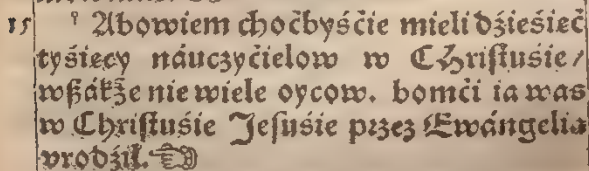 15 ⸮ Abowiem choćbyśćie mieli dźieśięć
tyśięcy náuczyćielow w CHristuśie/
wßákże nie wiele oycow. bomći ia was
w Christuśie Jesuśie przez Ewángelia
vrodźił.